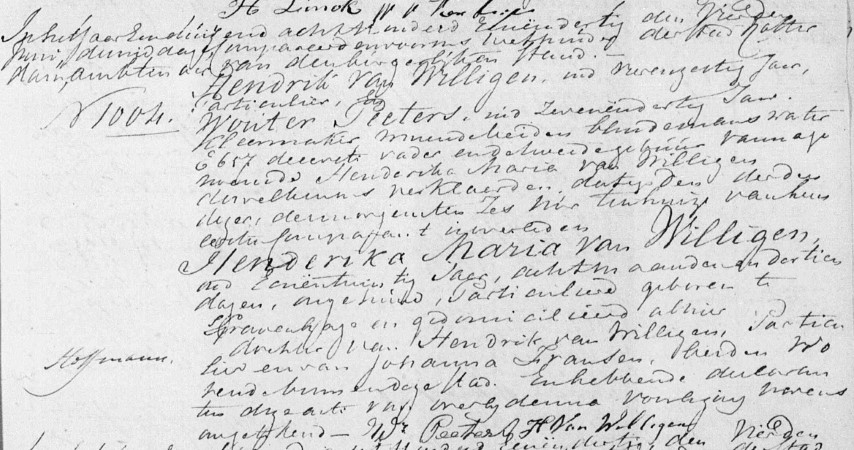 In het Jaar Eenduizend achthonderd Eenëndertig den Vierden
Juni des middags Compareerden voor ons Wethouder der Stad Rotter
dam, Ambtenaar van den burgerlijken Stand. —
Hendrik van Willigen, oud Jaar,
particulier, En
N 1004.
Wouter Peeters, oud Zevenendertig Jaar.
Kleermaker, woonende beiden blindemanswater
E 657 de eerste vader en de tweede van na te
noemene Henderika Maria van Willigen
dewelke ons verklaarden, dat op den derden
dezer, des morgens ten Zes Uur ten huize van hun
eerste Comparant is overleden
Henderika Maria van Willigen,
oud Eenëntwintig Jaar, acht maanden en dertien
dagen, ongehuwd, Particuliere geboren te
Gravenhage en gedomicilieerd alhier
dochter van Hendrik van Willigen, Particu
Hoffmann.
lier en van Johanna Fransen, beiden Wo
nende binnen deze stad. En hebbende declaran
ten deze acte na voorlezing nevens
ons getekend — Wr Peeters H Van Willigen